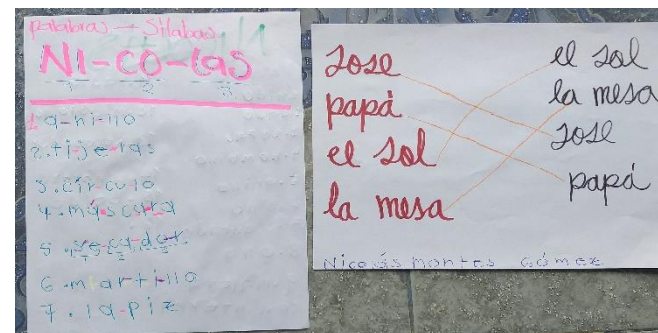 palabras → Sílabas
NI-CO-las
1 2 3
1. a-ni-llo
2. ti-je-ras
3. cír-cu-lo
4. más-ca-ra
5. se-ca-dor
6. mar-ti-llo
7. lá-piz
Jose
papá
el sol
la mesa
el sol
la mesa
Jose
papá
Nicolás montes Gómez